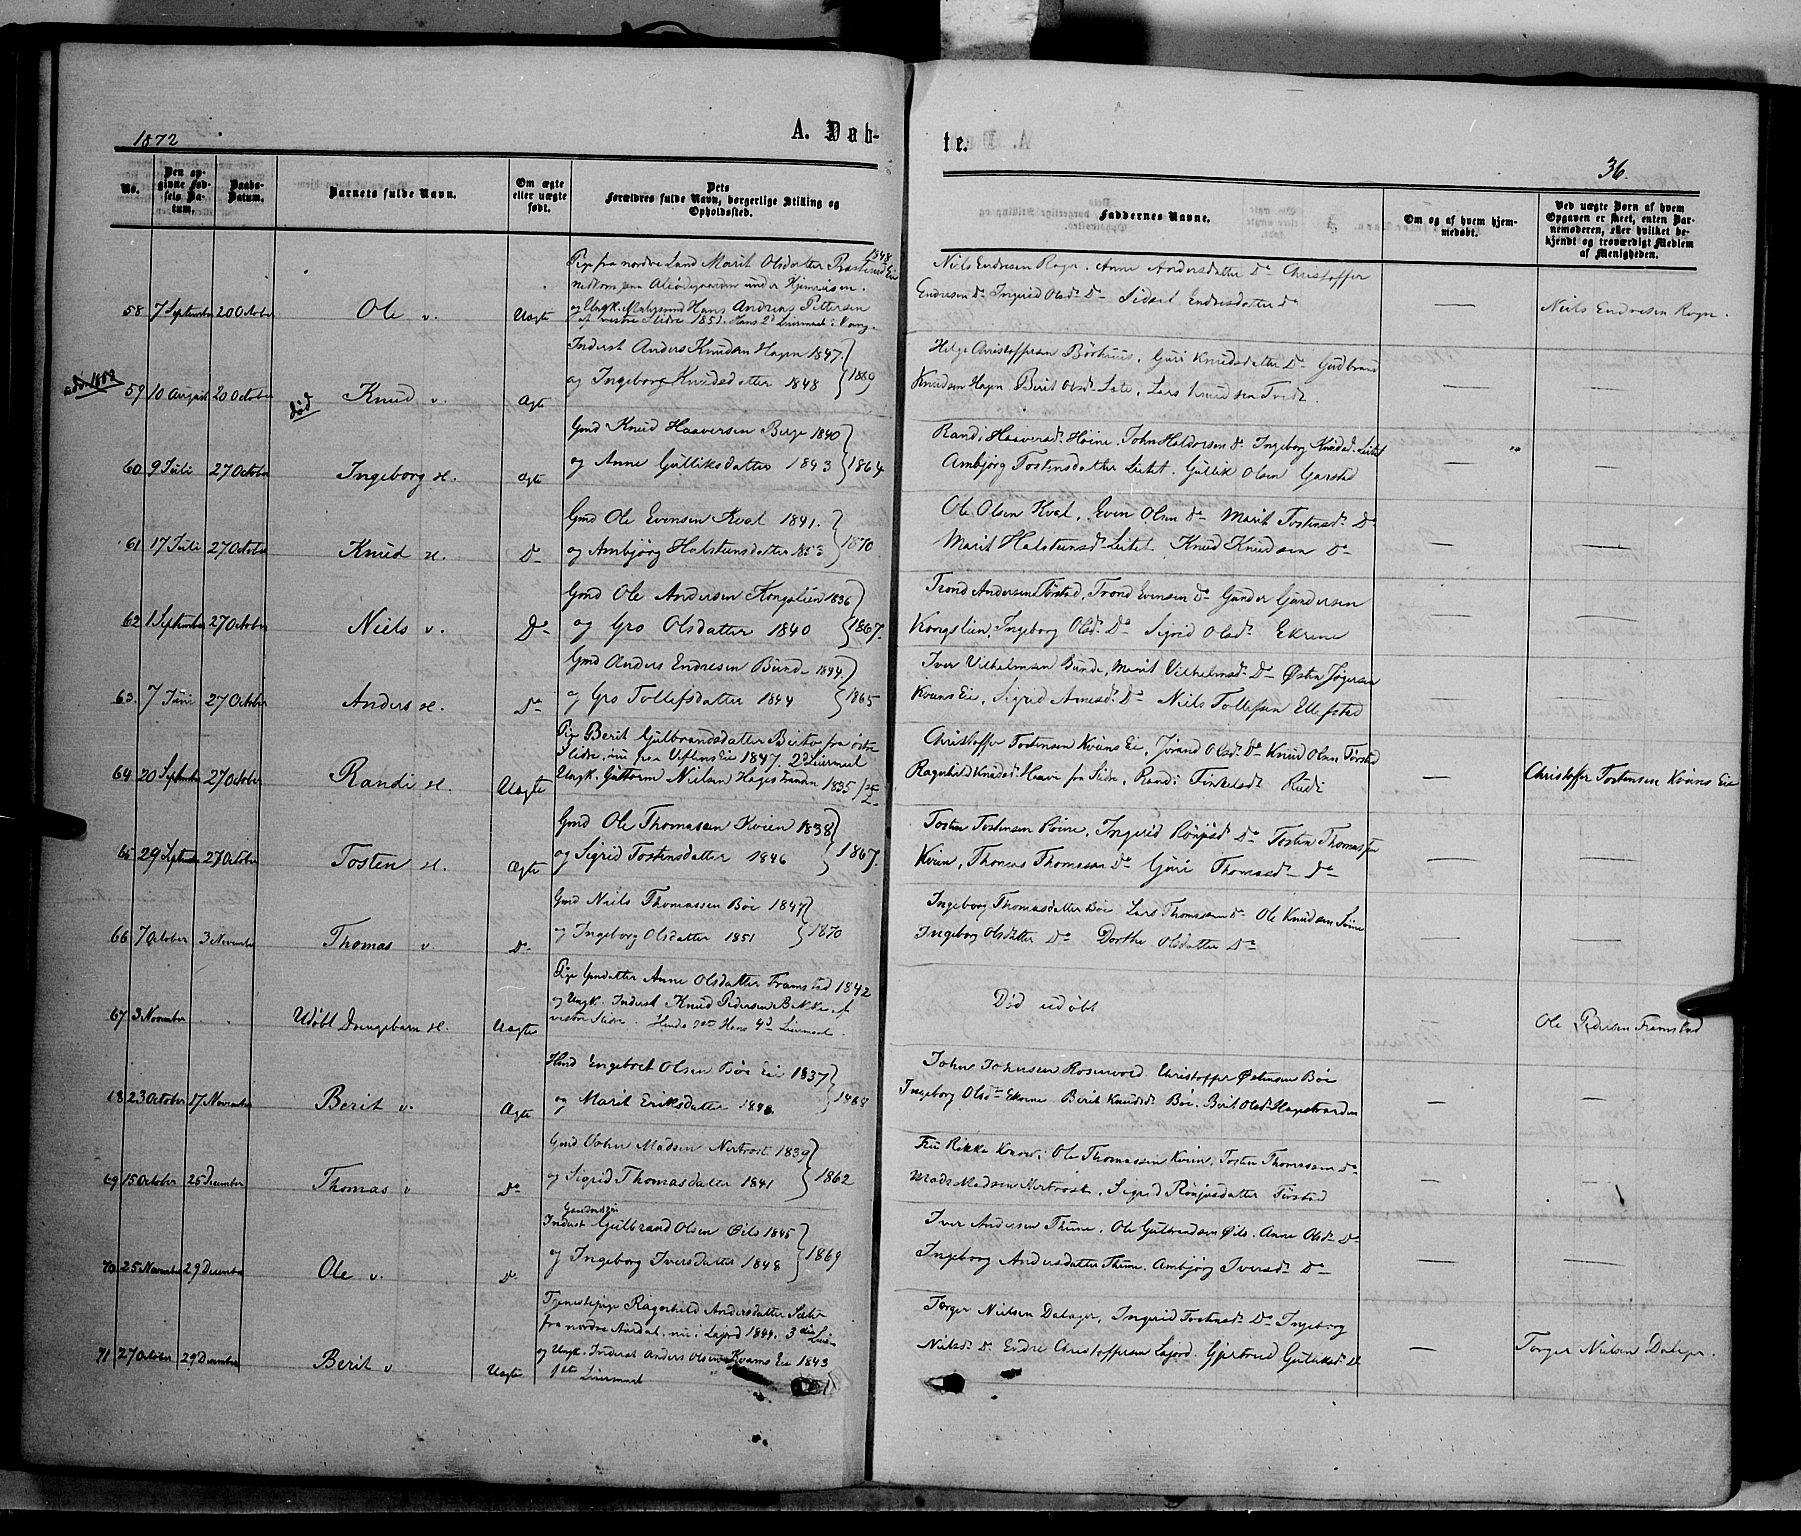 1872
A. Døb-
te.
36.
No.
Den opgivne Fødsels Datum.
Daabs-Datum.
Barnets fulde Navn.
Om ægte eller uægte født.
Dets Forældres fulde Navn, borgerlige Stilling og Opholdssted.
Faddernes Navne.
Om og af hvem hjemmedøbt.
Ved uægte Børn af hvem Opgaven er skeet, enten Barnemoderen, eller hvilket bekjendt og troværdigt Medlem af Menigheden.
Pige fra nordre Land Marit Olsdatter 1848
58 7 September 20 October Ole v. Uægte
og Ungk. Hans Andreas Pettersen
af vestre Slidre 1851. Hans 2d Leiermaal
Niels Endresen Rogn. Anne Andersdatter Do Christoffer
Endresen Do Ingrid Olsd. Do Sidsel Endresdatter Do
— Niels Endresen Rogn.
Inderst Anders Knudsen Hagen 1847.
59 10 August 20 October død Knud v. Ægte
og Ingeborg Knudsdatter 1848 } 1869
Helge Christoffersen Børhuus, Guri Knudsdatter Do Gudbrand
Knudsen Hagen, Berit Olsd. Lars Knudsen Tvedt.
— —
Gmd Knud Haaversen Berge 1840
60 9 Juli 27 October Ingeborg st. Ægte
og Anne Gulliksdatter 1843 } 1864
Randi Haaversd. Høine. John Haldorsen Do Ingeborg Knudsd. Leitet
Ambjørg Tostensdatter Leitet. Gullik Olsen Garstad
— —
Gmd Ole Evensen Kval 1841.
61 17 Juli 27 October Knud st. Do
og Ambjørg Halstensdatter 1853 } 1870
Ole Olsen Kval, Even Olsen Do Marit Tostensd. Do
Marit Halstensd. Leitet. Knud Knudsen Do
— —
Gmd Ole Andersen Kongslien 1836
62 1 September 27 October Niels v. Do
og Gro Olsdatter 1840 } 1867.
Trond Andersen Tørstad, Trond Evensen Do Gunder Gundersen
Kongslien, Ingeborg Olsd. Do Sigrid Olsd. Ekrene
— —
Gmd Anders Endresen Bunde 1844.
63 7 Juni 27 October Anders st. Do
og Gro Tollefsdatter 1844 } 1865
Iver Vilhelmsen Bunde, Marit Vilhelmsd. Do Østen Jøgersen
Kvams Eie, Sigrid Arnesd. Do Niels Tollefsen Ellefstad
— —
Pige Berit Gulbrandsdatter Beito fra østre
Slidre, nu paa Ueftens Eie 1847. 2d Leiermaal
64 20 September 27 October Randi st. Uægte
Ungk. Guttorm Nielsen Hagestranden 1835
Christoffer Tostensen Kvams Eie, Jørand Olsd. Do Knud Olsen Tørstad
Ragnhild Knudsd. Haave fra Slidre, Randi Tinkelsd. Rudi
— Christoffer Tostensen Kvams Eie
Gmd Ole Thomassen Kvien 1838
65 29 September 27 October Tosten st. Ægte
og Sigrid Tostensdatter 1846 } 1867.
Tosten Tostensen Ingerid Do Tosten Thomassen
Kvien, Thomas Thomassen Do Guri Thomasd. Do
— —
Gmd Niels Thomassen Bøe 1847
66 7 October 3 November Thomas v. Do
og Ingeborg Olsdatter 1851 } 1870
Ingeborg Thomasdatter Bøe Lars Thomassen Do Ole Knudsen
Ingeborg Olsdatter Do Dorthe Olsdatter Do
— —
Pige Gmdatter Anne Olsdatter Framstad 1842
67 3 November Udøbt Drengebarn st. Uægte
og Ungk. Inderst Knud Pedersen Bakke af
vestre Slidre. Hans 4d Leiermaal.
Død udøbt
— Ole Pedersen Framstad
Hmd Engebret Olsen Bøe Eie 1837
68 23 October 17 November Berit v. Ægte
og Marit Eriksdatter } 1868
John Johnsen Rosenvold. Christoffer Østensen Bøe
Ingeborg Olsd. Ekerne Berit Knudsd. Bøe. Berit Olsd. Hagestranden
— —
Gmd John Madsen Nertrost 1839
69 15 October 26 December Thomas v Do
og Sigrid Thomasdatter 1841 } 1862
Fru Rikke Ole Thomassen Kvien, Tosten Thomassen Do
Mads Madsen Nertrost, Sigrid Tørstad
— —
Inderst Gulbrand Olsen Øils 1845
70 25 November 29 December Ole v. Do
og Ingeborg Iversdatter 1848 } 1869
Iver Andersen Thune, Ole Gulbrandsen Øils. Anne Olsd. Do
Ingeborg Andersdatter Thune. Ambjørg Iversd. Do
— —
Tjenestepige Ragnhild Andersdatter
fra nordre Aurdal, nu i Lajord 1844. 3die
71 27 October 29 December Berit v Uægte
og Ungk. Inderst Anders Olsen Kvams Eie 1843
1ste Leiermaal
Torger Nielsen Dalager, Ingerid Tostensd. Do Ingeborg
Nielsd. Do Endre Christoffersen Lajord. Gjertrud Gulliksd. Do
— Torger Nielsen Dalager.